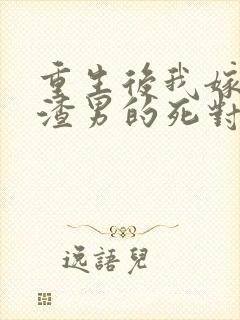 重生後我嫁
渣男的死對
逸語兒